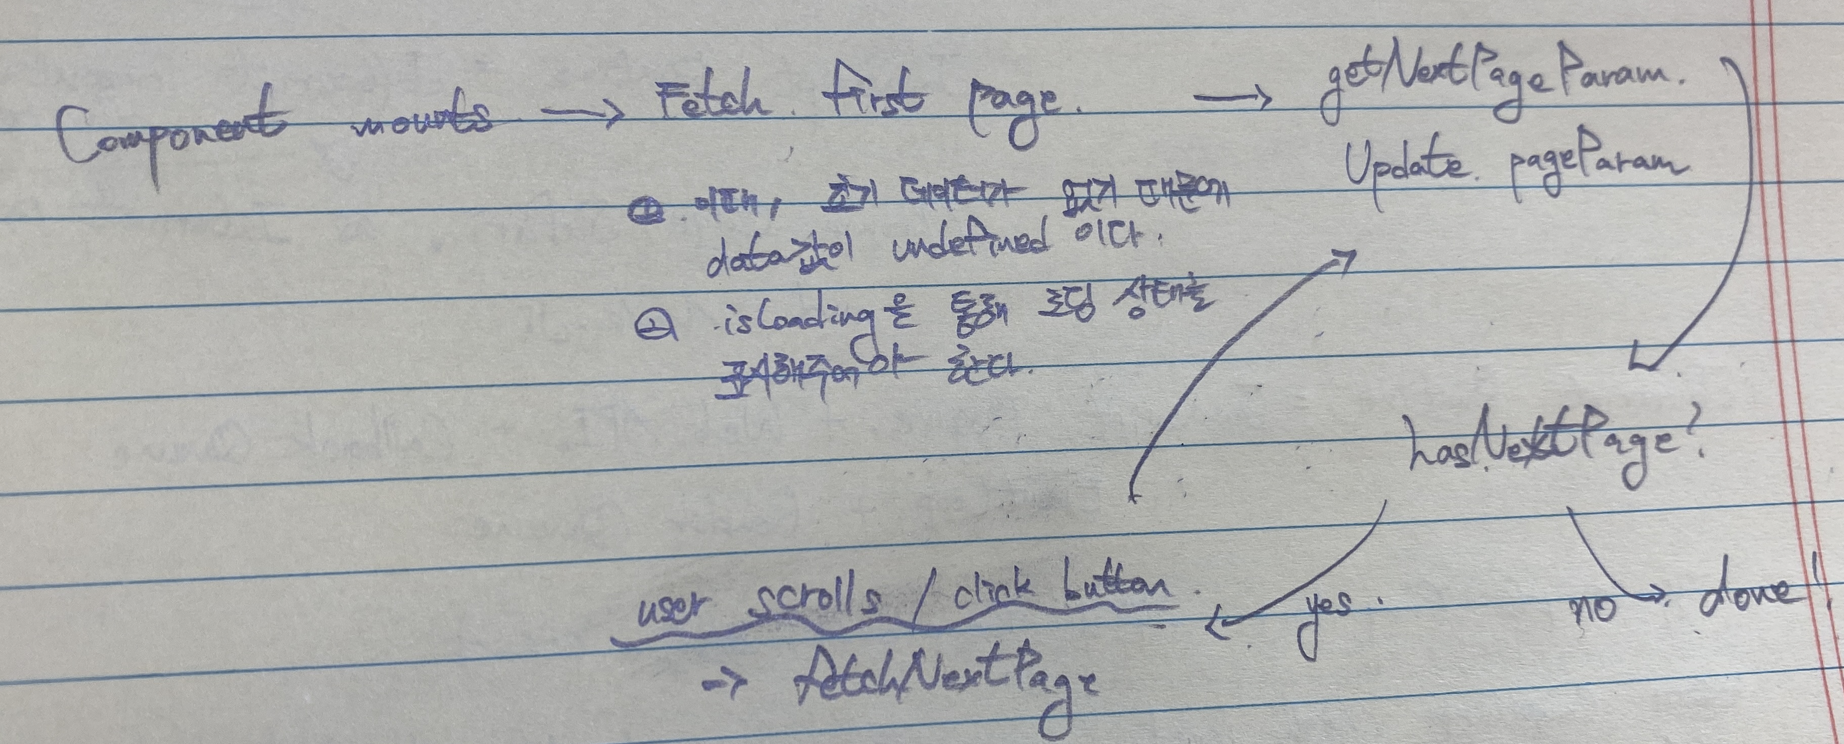 Component mounts → Fetch. first page. → getNextPageParam.
Update. pageParam
① 이때, 초기 데이터가 없기 때문에
data값이 undefined 이다.
② isLoading을 통해 로딩 상태를
표시해주어야 한다.
hasNextPage?
user scrolls / click button.
yes.
no → done!
→ fetchNextPage